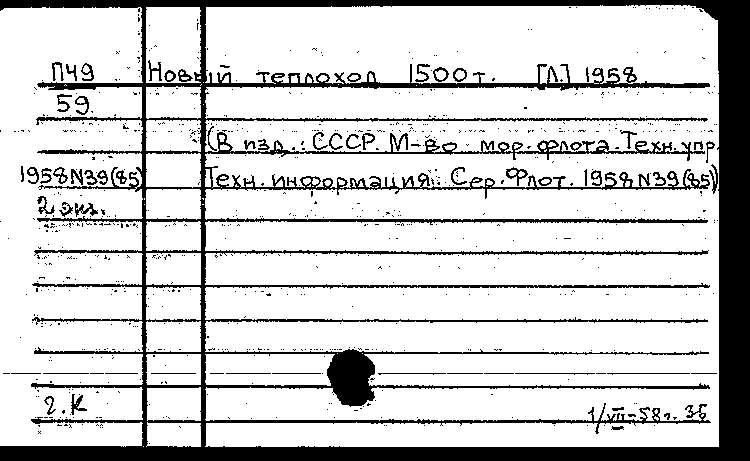 П49 Новый теплоход 1500т. [Л.] 1958.
59
(В изд.: СССР. М-во мор. флота. Техн. упр.
1958 N39(85) Техн. информация. Сер. Флот. 1958 N39(85))
2 экз.
г. К
1/VII-58г. ЗБ